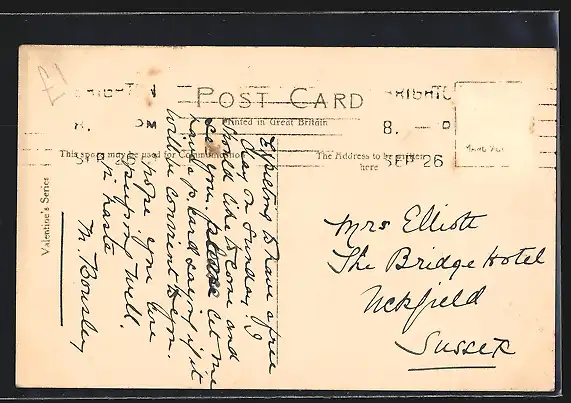 £1
BRIGHTON
8. PM
SEP 26
POST CARD
Printed in Great Britain
This space may be used for Communication
The Address to be written
here
BRIGHTO
8. — P
SEP 26
Valentine's Series
Expecting to have a free
day on Sunday. I
should like to come and
see you, please let me
have a p. card saying if it
will be convient to you.
hope you are
keeping well.
in haste
M. Bousley
Mrs Elliott
The Bridge Hotel
Uckfield
Sussex